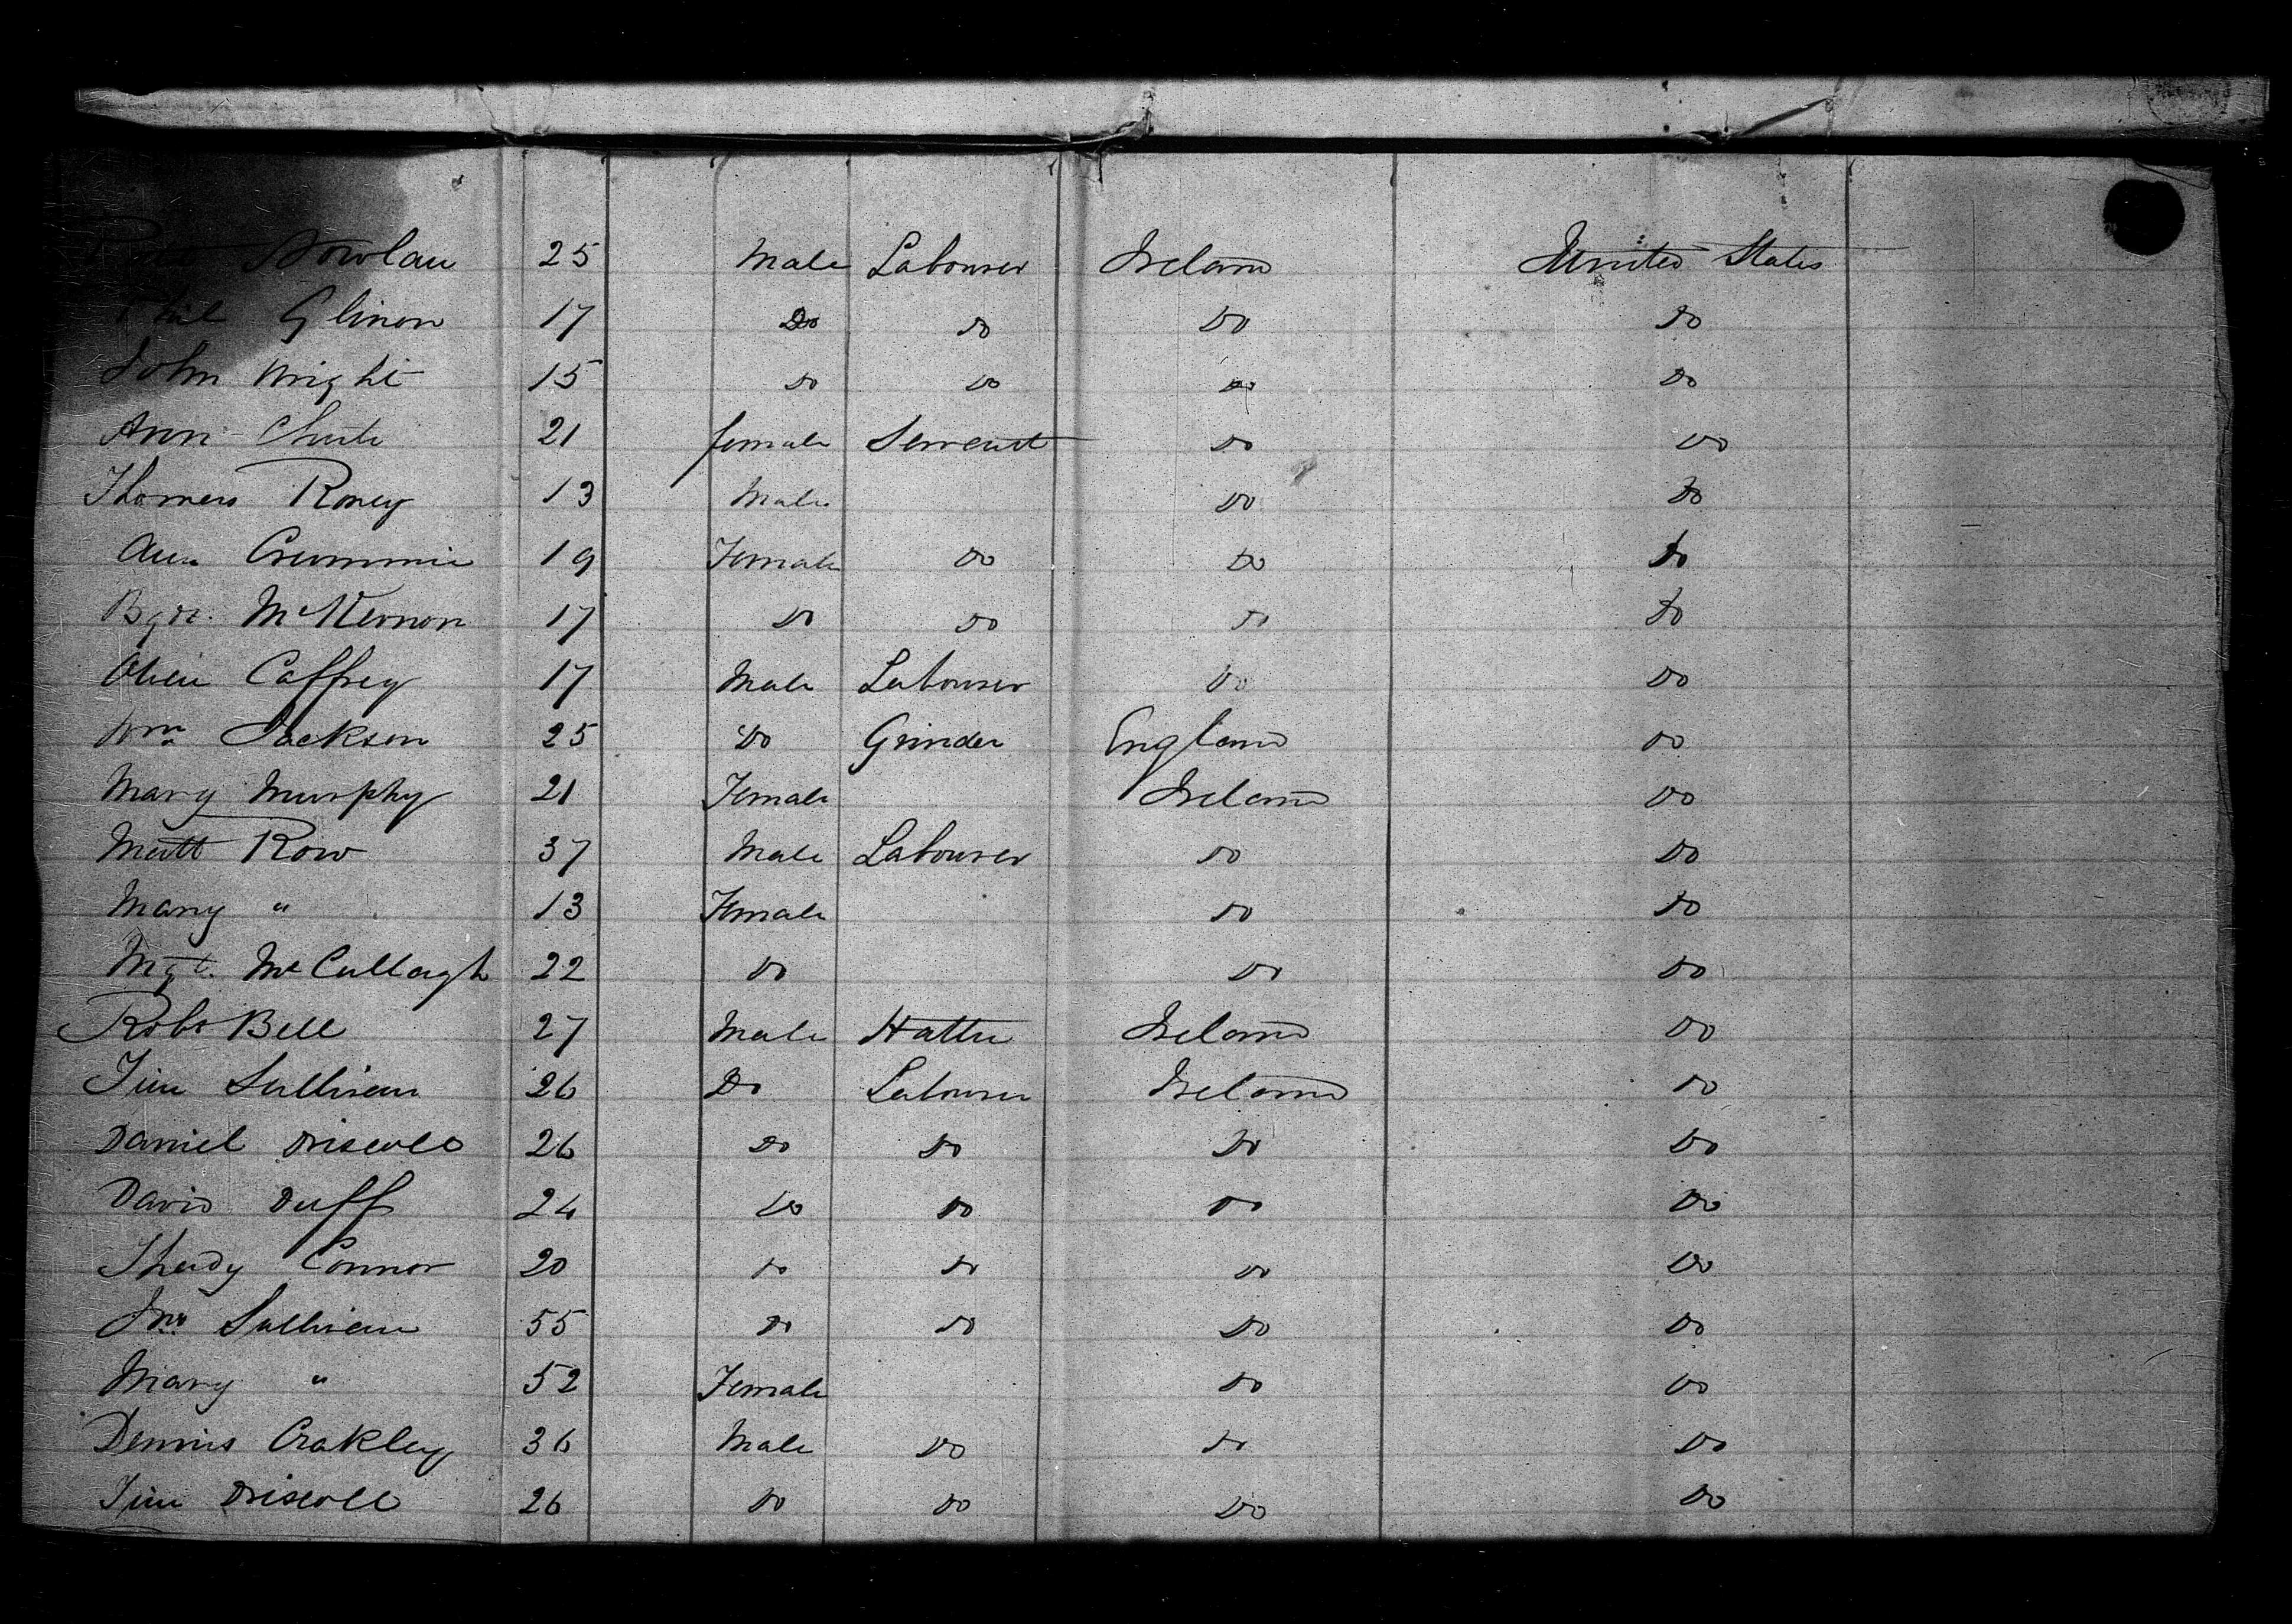 Nowlan 25 Male Labourer Ireland United States
Phil Glinon 17 Do Do Do Do
John Wright 15 Do Do Do Do
Ann Chute 21 female Servant Do Do
Thomas Roney 13 Male Do Do
Ann Crummie 19 Female Do Do Do
Bgt. McKernon 17 Do Do Do Do
Caffrey 17 Male Labourer Do Do
Wm Jackson 25 Do Grinder England Do
Mary Murphy 21 Female Ireland Do
Matt Row 37 Male Labourer Do Do
Mary " 13 Female Do Do
Mgt. McCullagh 22 Do Do Do
Robt Bell 27 Male Hatter Ireland Do
Tim Sullivan 26 Do Labourer Ireland Do
Daniel Driscoll 26 Do Do Do Do
David Duff 24 Do Do Do Do
Thady Connor 20 Do Do Do Do
Jno Sullivan 55 Do Do Do Do
Mary " 52 Female Do Do
Dennis Crakley 36 Male Do Do Do
Tim Driscoll 26 Do Do Do Do